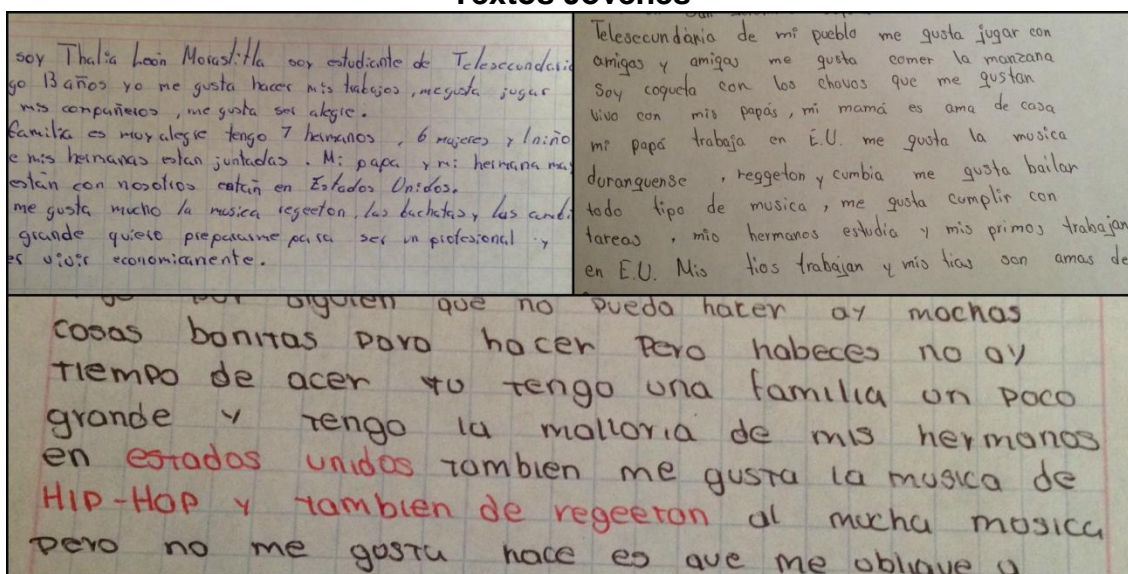 Textos Jóvenes
soy Thalia León Morastitla soy estudiante de Telesecundaria
go 13 años yo me gusta hacer mis trabajos, me gusta jugar
mis compañeros, me gusta ser alegre.
familia es muy alegre tengo 7 hermanos, 6 mujeres y 1 niño
e mis hermanas estan juntadas. Mi papa y mi hermana ma
están con nosotros están en Estados Unidos.
me gusta mucho la musica regeeton, las bachatas y las
grande quiero prepararme para ser un profesional y
vivir economicamente.
Telesecundaria de mi pueblo me gusta jugar con
amigas y amigas me gusta comer la manzana
Soy coqueta con los chavos que me gustan
vivo con mis papás, mi mamá es ama de casa
mi papá trabaja en E.U. me gusta la musica
duranguense, reggeton y cumbia me gusta bailar
todo tipo de musica, me gusta cumplir con
tareas, mis hermanos estudia y mis primos trabajan
en E.U. Mis tios trabajan y mis tias son amas de
que no pueda hacer ay mochas
cosas bonitas para hacer Pero habeces no ay
tiempo de acer yo tengo una familia un poco
grande y tengo la malloria de mis hermanos
en estados unidos tambien me gusta la musica de
HIP-HOP y tambien de regeeton al mucha mosica
pero no me gosta hace es que me oblique a